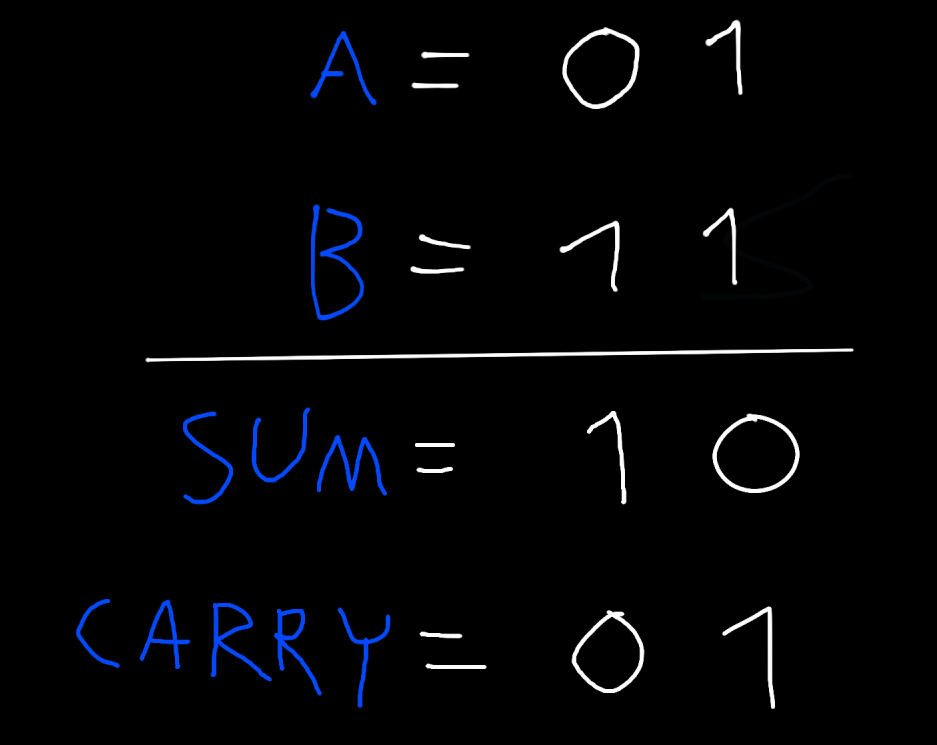 A = 0 1
B = 1 1
SUM = 1 0
CARRY = 0 1